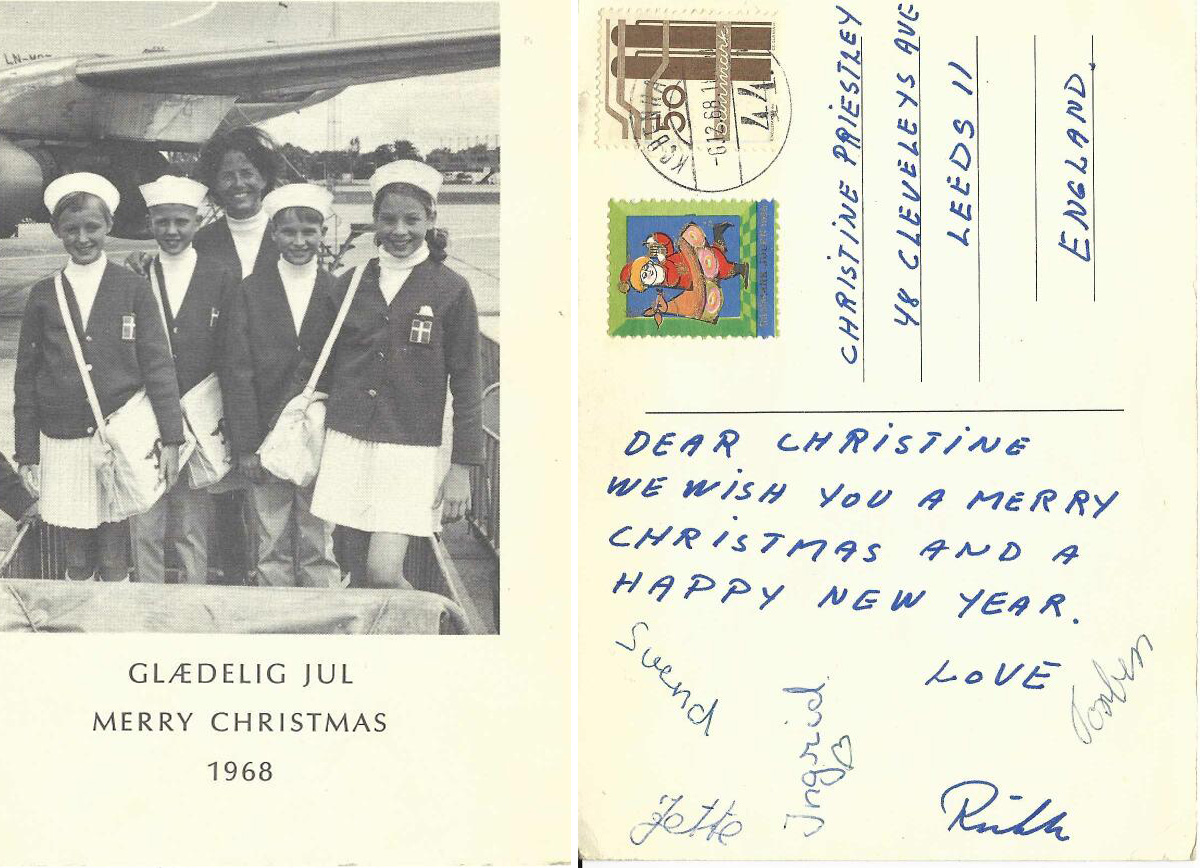 GLÆDELIG JUL
MERRY CHRISTMAS
1968
50
-6.12.68.
CHRISTINE PRIESTLEY
48 CLEVELEYS AVE
LEEDS 11
ENGLAND.
DEAR CHRISTINE
WE WISH YOU A MERRY
CHRISTMAS AND A
HAPPY NEW YEAR.
LOVE
Svend
Ingrid
Torben
Jette
Ruth